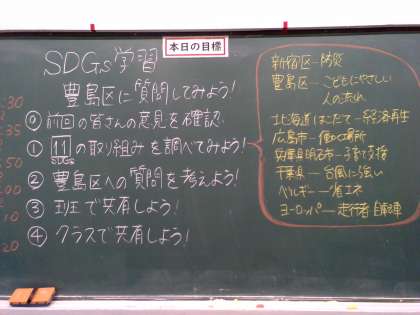 本日の目標
SDGs学習
豊島区に質問してみよう!
⓪ 前回の皆さんの意見を確認
① 11 の取り組みを調べてみよう!
SDGs
② 豊島区への質問を考えよう!
③ 班で共有しよう!
④ クラスで共有しよう!
:30
:35
:50
:00
:10
:20
新宿区―防災
豊島区―こどもにやさしい
人の流れ
北海道はこだて―経済再生
広島市―働く場所
兵庫県明石市―子育て支援
千葉県―台風に強い
ベルギー―省エネ
ヨーロッパ―走行者 自転車